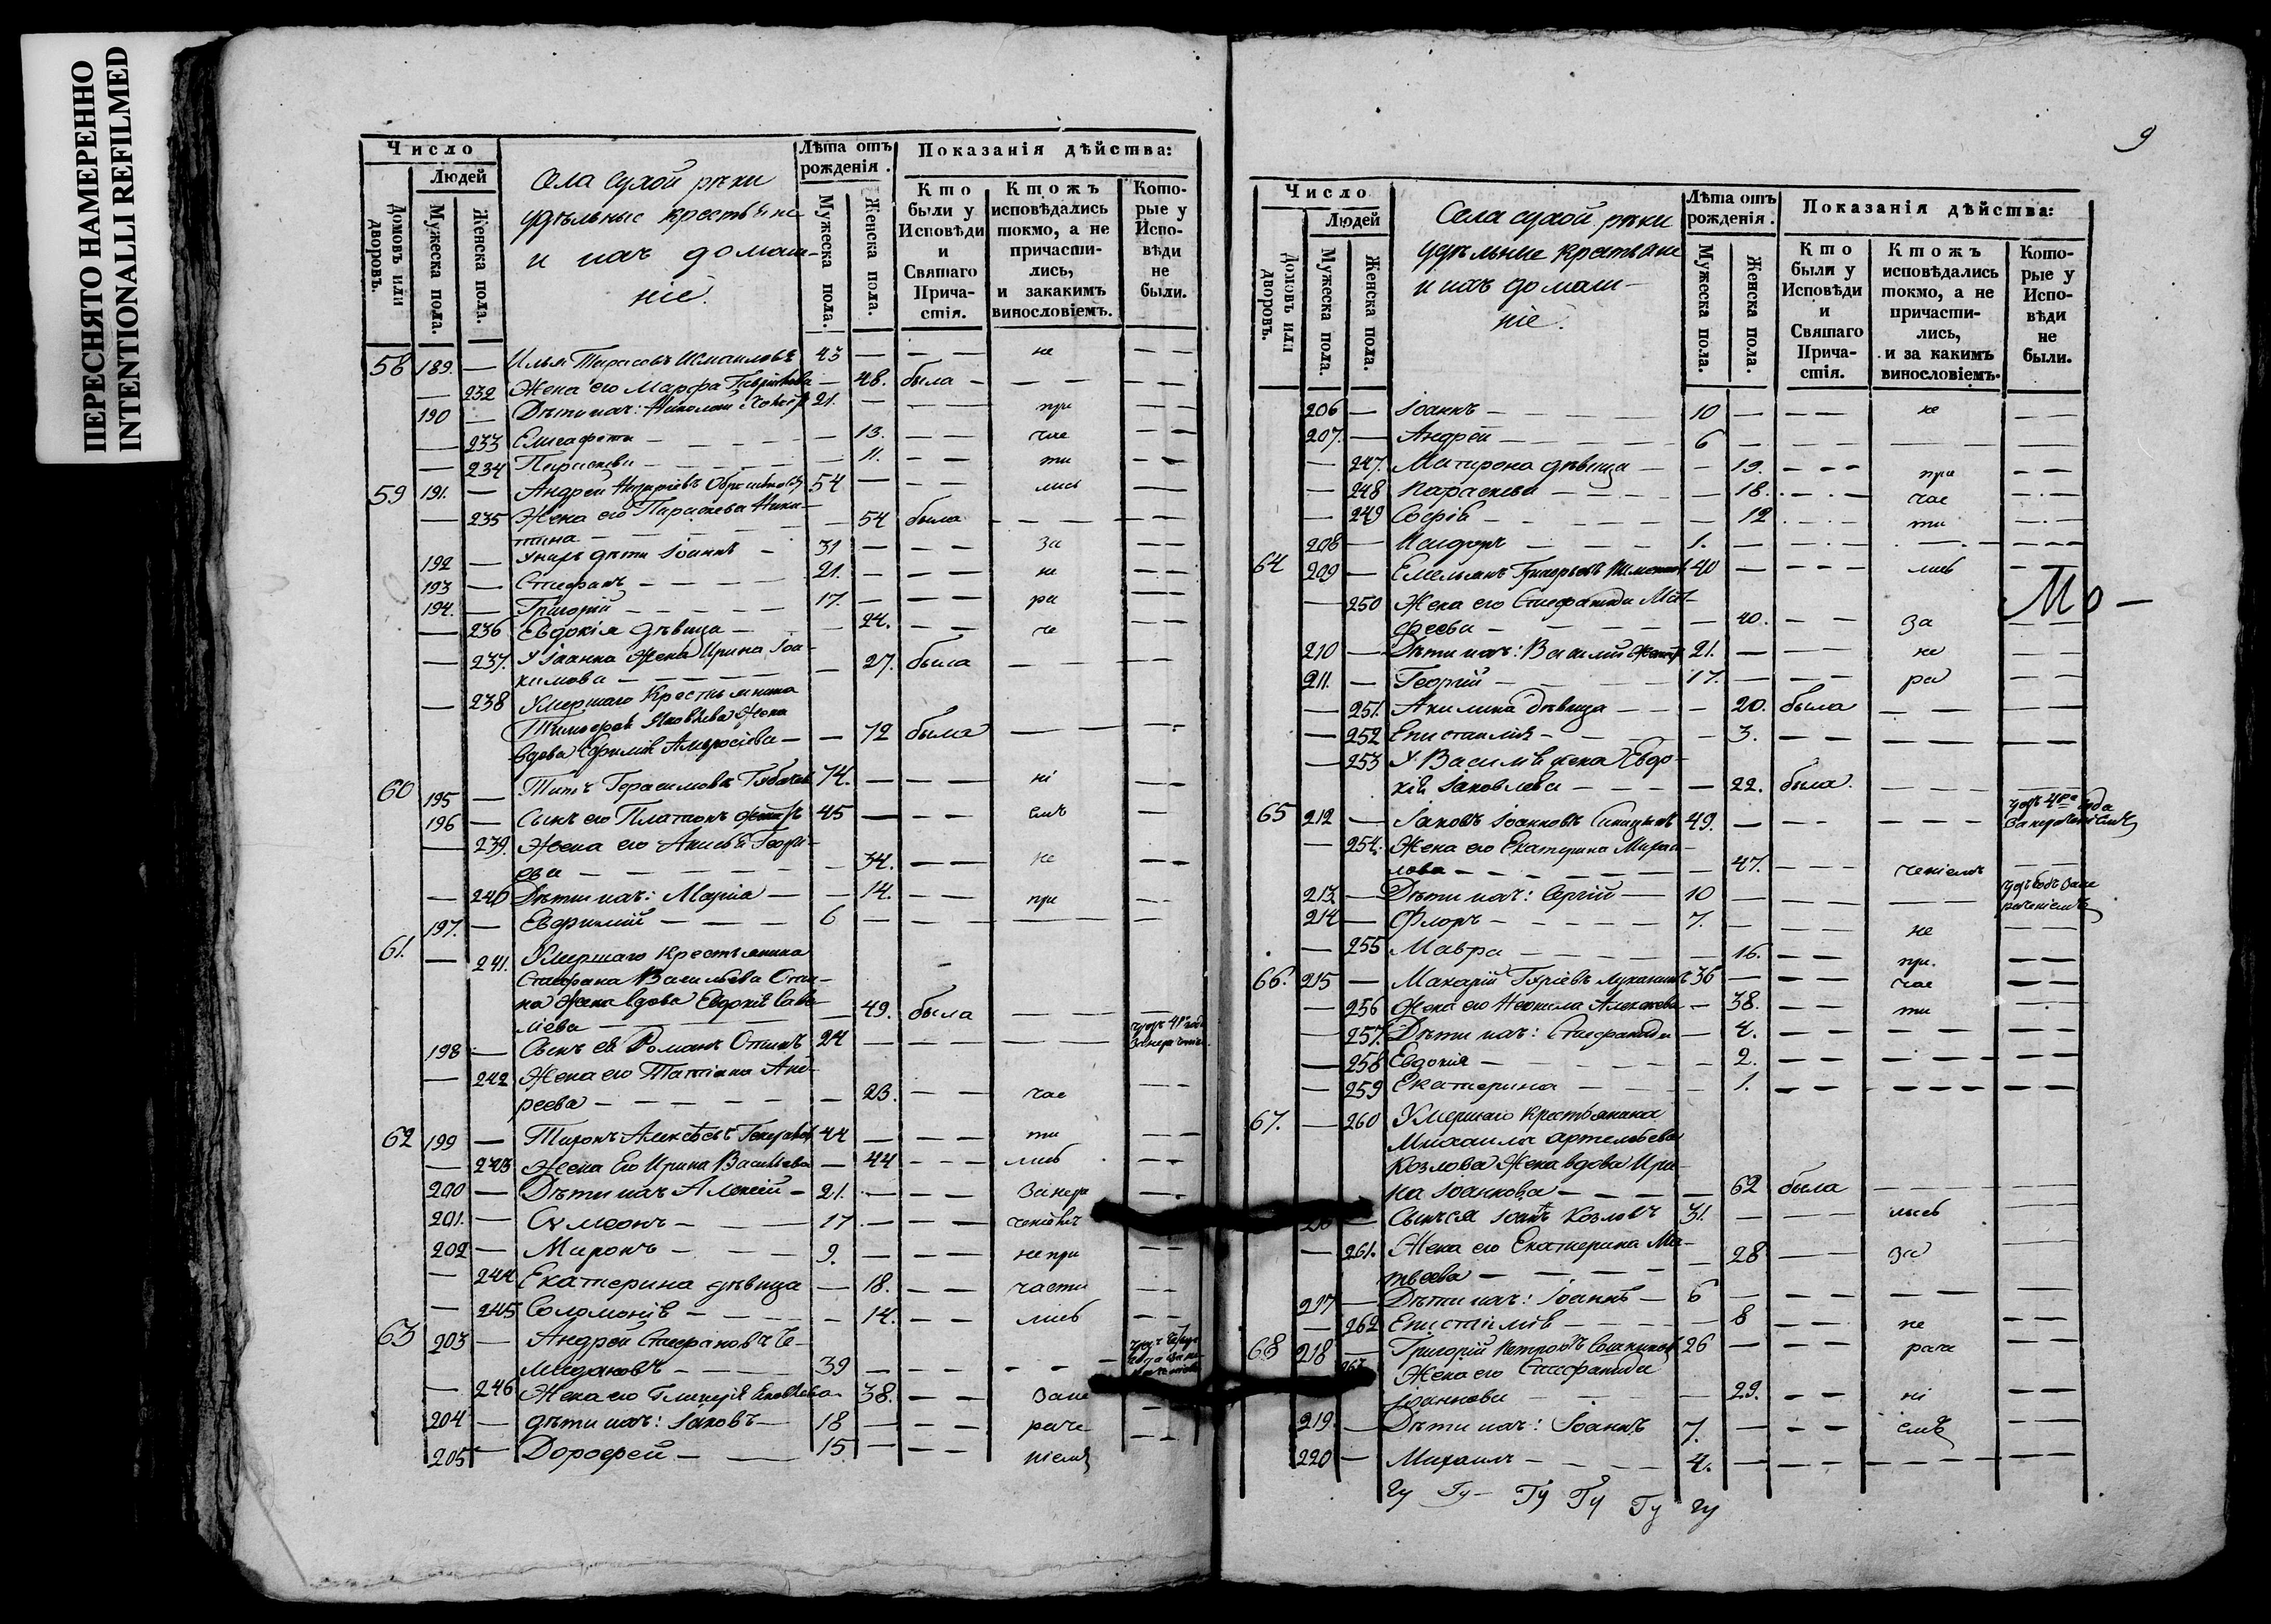 ПЕРЕСНЯТО НАМЕРЕННО
INTENTIONALLI REFILMED
Число
Людей
Домовъ или дворовъ.
Мужеска пола.
Женска пола.
Села сухой рѣки
удѣльные крестьяне
и ихъ домаш-
ніе.
Лѣта отъ рожденія.
Мужеска пола.
Женска пола.
Показанія дѣйства:
Кто были у Исповѣди и Святаго Прича-стія.
Ктожъ исповѣдались токмо, а не причасти-лись, и закакимъ винословіемъ.
Кото-рые у Испо-вѣди не были.
58 189. — Илья Тарасовъ 43 — — — не — —
— 232 Жена его Марфа — 48. была — — — — —
190 — Дѣти ихъ: Николай 21. — — — при — —
— 233 Елисафета — 13. — — час — —
— 234 Параскева — 11. — — ти — —
59 191. — Андрей 54 — — — лись — —
— 235 Жена его Параскева Ники-
тина — 54 была — — — — —
192 — У нихъ дѣти Іоаннъ — 31 — — — за — —
193 — Стефанъ — 21. — — — не — —
194. — Григорій — 17. — — — ра — —
— 236 Евдокія дѣвица — 24. — — че — —
— 237. У Іоанна жена Ирина Іоа-
кимова — 27. была — — — — —
— 238 Умершаго Крестьянина
Тимофея Яковлева жена
вдова Ефимія Амвросіева — — 72 была — — — —
60 195 — Титъ Герасимовъ 74. — — — ні — —
196 — Сынъ его Платонъ 45 — — — емъ — —
— 239. Жена его Анисья Георгі-
ева — 34. — — не — —
— 240 Дѣти ихъ: Марѳа — — 14. — — при — —
197. — Евфимій — 6 — — — — — —
61. — 241. Умершаго Крестьянина
Стефана Васильева
жена вдова Евдокія Саве-
ліева — 49. была — — —
198 — Сынъ ея Романъ 24 — — — — —
— 242 Жена его Татіана Анд-
реева — — 23. — — час — —
62 199 — Тихонъ Алексѣевъ 44 — — — ти — —
— 243 Жена Его Ирина Васильева — 44 — — лись — —
200 — Дѣти ихъ Алексій — 21. — — — Занера — —
201. — Сѵмеонъ — 17 — — — ченіемъ
202 — Миронъ — 9. — — — не при — —
— 244 Екатерина дѣвица — 18. — — части — —
— 245 Соломонія — 14. — — лись — —
63 203 — Андрей Стефановъ Че-
модановъ — 39 — — — — —
— 246 Жена его Гликерія Яковлева — 38. — — Зане —
204 — дѣти ихъ: Іаковъ — 18 — — — раче — —
205 — Дорофей — 15 — — — ніемъ
9
Число
Людей
Домовъ или дворовъ.
Мужеска пола.
Женска пола.
Села сухой рѣки
удѣльные крестьяне
и ихъ домаш-
ніе.
Лѣта отъ рожденія.
Мужеска пола.
Женска пола.
Показанія дѣйства:
Кто были у Исповѣди и Святаго Прича-стія.
Ктожъ исповѣдались токмо, а не причасти-лись, и за какимъ винословіемъ.
Кото-рые у Испо-вѣди не были.
206 — Іоаннъ — 10 — — — не — —
207. — Андрей — 6 — — — — — —
— 247. Матрона дѣвица — — 19. — — при — —
— 248 Параскева — — 18. — — час — —
— 249 Софія — — 12 — — ти — —
208 — Исидоръ — 1. — — — — — —
64 209 — Емельянъ Григорьевъ 40 — — — лись — —
— 250 Жена его Стефанида Мат-
феева — — 40. — — За
Мо —
210 — Дѣти ихъ: Василій 21. — — — не — —
211. — Георгій — 17. — — — ра — —
— 251. Акилина дѣвица — — 20. была — — — —
— 252 Епистимія — — 3. — — — — — —
— 253 У Василія жена Евдо-
кія Іаковлева — — 22. была — — — —
65 212 — Іаковъ Іоанновъ 49. — — — — —
— 254. Жена его Екатерина Михаи-
лова — — 47. — — ченіемъ — —
213. — Дѣти ихъ: Сергій — 10 — — — — —
214 — Флоръ — 7. — — — не — —
— 255 Мавра — 16. — — при. — —
66. 215 — Макарій 36 — — — час — —
— 256 Жена его Неонила Алексѣева — 38. — — ти — —
— 257. Дѣти ихъ: Стефанида — 4. — — — — — —
— 258 Евдокія — — 2. — — — — — —
— 259 Екатерина — — 1. — — — — — —
67. — 260 Умершаго крестьянина
Михаила Артемьева
Козлова жена вдова Ири-
на Іоаннова — — 62 была — — —
— Сынъ ея Іоаннъ Козловъ 31. — — — лись — —
— 261. Жена его Екатерина Ма-
твеева — — 28 — — за — —
217 — Дѣти ихъ: Іоаннъ — 6 — — — — — —
— 262 Епистимія — — 8 — — не — —
68 218 — Григорій Петровъ 26 — — — раче — —
Жена его Стефанида
Іоаннова — — 29. — — ні — —
219. — Дѣти ихъ: Іоаннъ 7. — — — емъ — —
220 — Михаилъ — 4. — — — — — —
Гу Гу — Гу Гу Гу Гу